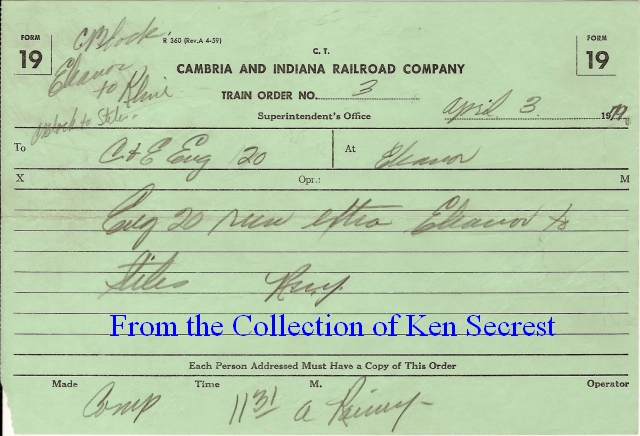 FORM
19
C Block
Eleanor
to Kline
Block to Stiles
R 360 (Rev. A 4-59)
C. T.
CAMBRIA AND INDIANA RAILROAD COMPANY
TRAIN ORDER NO. 3
FORM
19
Superintendent's Office
April 3 19
To C & E Eng 20
At Eleanor
X
Opr.:
M
Eng 20 run extra Eleanor to
Stiles
From the Collection of Ken Secrest
Each Person Addressed Must Have a Copy of This Order
Made
Time
M.
Operator
Comp 11 31 a